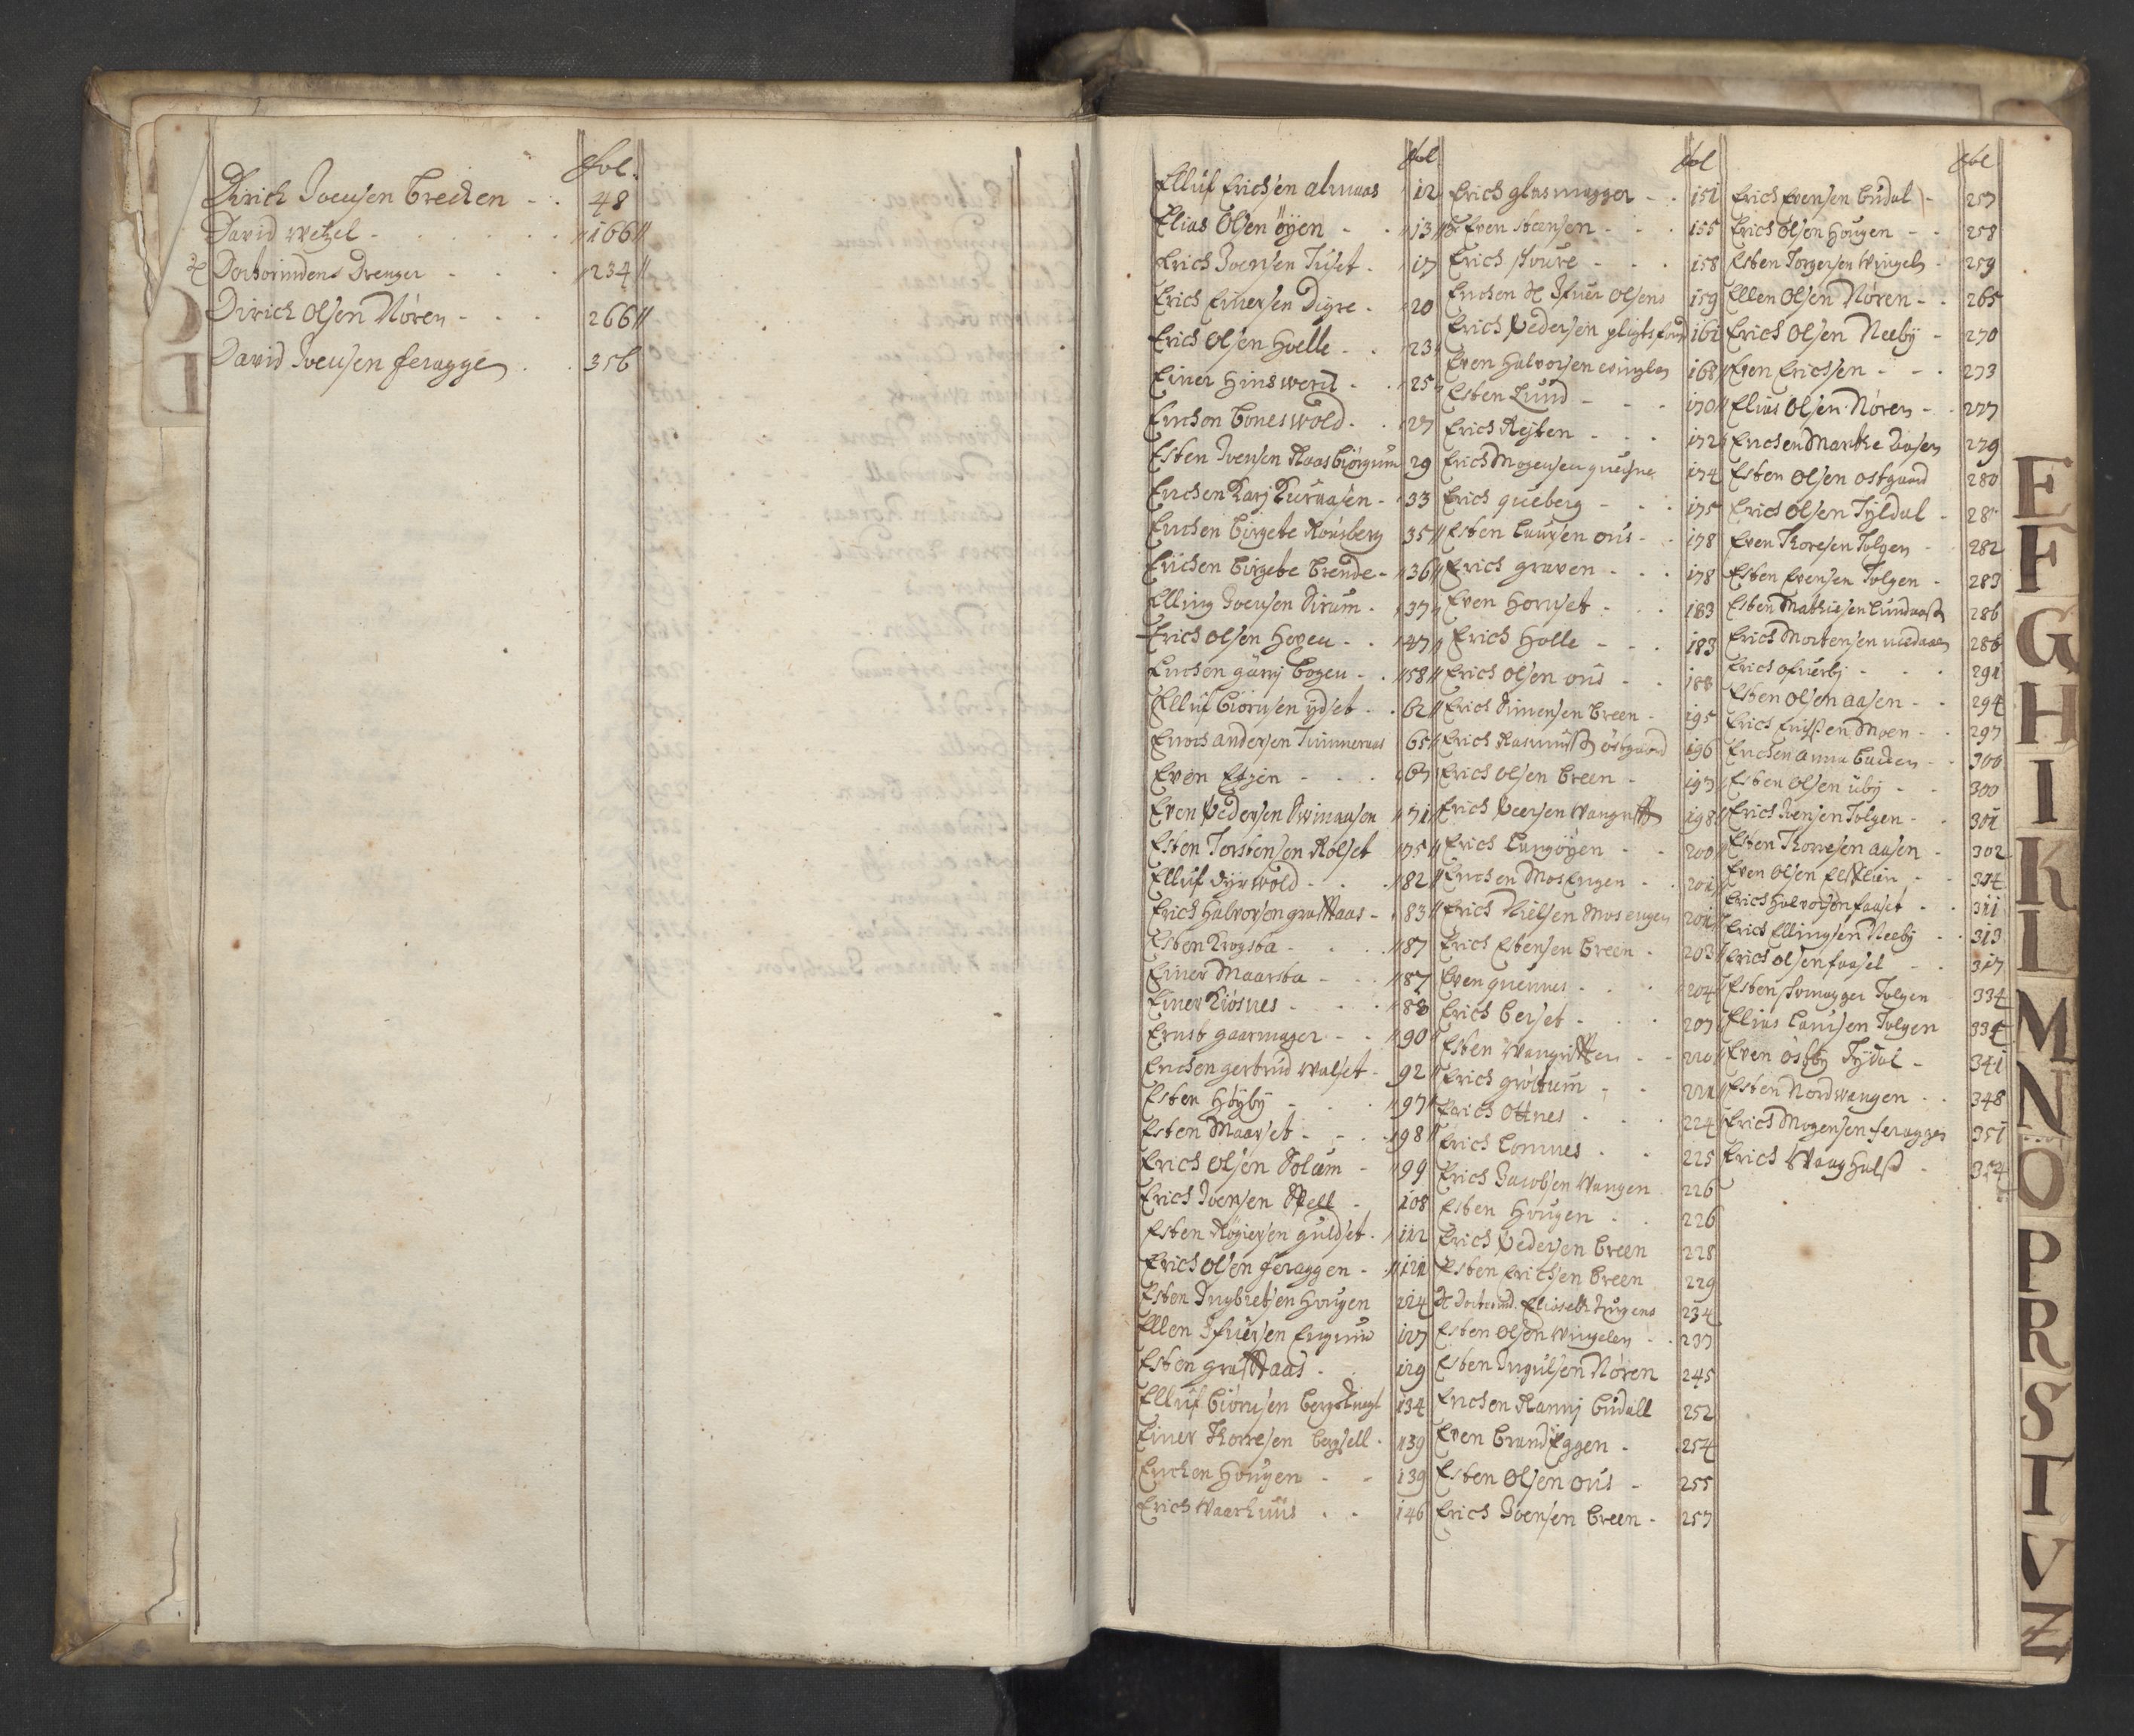 fol.
Dirich Joensen Breeken - . 48
David Wetzel - . . . . . 166
Dirich Olsen Nören - . . 266
David Joensen feragge . . 356
fol
Elluf Erichsen almaas 12
Elias Olsen öyen - . 13
Erich Joensen Tuset . 17
Erich Einersen Digre . 20
Erich Olsen Hvelle . . 23
Einer Hinswerk . . 25
Enchen Boneswold . . 27
Esten Joensen Aasbiörgum 29
Enchen Karj Kuraasen - 33
Enchen Birgete Rönsberg 35
Enchen Birgete Brende - 36
Elling Joensen Dirum . 37
Erich Olsen Hoven . . 47
Enchen gurj Bogen . . 58
Elluf Biörnsen ydset . . 62
Enoch andersen Tuineraas 65
Even Egjen - . . . 67
Even Pedersen Svinaasen 71
Esten Torstensen Rolset 75
Elluf dyrwold . . . 82
Erich Halvorsen grafaas - 83
Esten Krogsta - . . . 87
Einer Maarsta - . . . 87
Einer Kiösnes - . . . 88
Ernst gaarmager - . . 90
Enchen gertrud Walset - 92
Esten Höyby - . . . 97
Esten Maarset . - . 98
Erich Olsen Solem - 99
Erich Joensen Spell . 108
Esten Rögiersen guldset . 112
Erich Olsen feraggen - 121
Esten Ingbretsen Hougen 124
Ellen Ifuersen Engnim 127
Esten graffaas . 129
Elluf Biörnsen 134
Einer Thoresen bergsell . 139
Enchen Hougen - - 139
Erich Waarhuus . . 146
fol
Erich glasmagger - . 151
Even steensen - . . 155
Erich stoure - . . . 158
Enchen Ifuer Olsens 159
Erich Pedersen 161
Even Halvorsen 168
Esten Lund - - . 170
Erich Rejten - . . 172
Erich Mogensen 174
Erich queberg - . . 175
Esten Laursen ous - . 178
Erich graven - . . . 178
Even Hornset . . . 183
Erich Holle - - . . 183
Erich Olsen ous - . . 188
Erich Simensen Breen - 195
Erich Rasmussen östgaard 196
Erich Olsen Breen . 197
Erich Peersen 198
Erich Langöyen - . 200
Enchen Mosengen . . 201
Erich Nielsen Mosengen 201
Erich Estensen Breen . 203
Even quennes . . . 204
Erich Berset . . . 207
Esten Wangriften . . 210
Erich gröttum . . 221
Erich Ottnes . . . 224
Erich Lomnes . . 225
Erich Jacobsen Wangen 226
Esten Hougen . . 226
Erich Pedersen Breen 228
Esten Erichsen Breen 229
234
Esten Olsen Wingelen . . 237
Esten Ingulsen Nören 245
Enchen Rannj Budall 252
Even Brandeggen . 254
Esten Olsen ous - 255
Erich Joensen Breen . 257
fol
Erich Evensen Budal - 257
Erich Olsen Hougen - . 258
Esten Torgersen Wingeln 259
Ellen Olsen Nören - . 265
Erich Olsen Neeby . 270
Even Erichsen - . . 273
Elias Olsen Nören - . 277
Enchen Marthe 279
Esten Olsen ostgaard 280
Erich Olsen Tyldal . 281
Even Thoresen Tolgen . 282
Esten Evensen Tolgen . 283
Esten Mathiesen 286
Erich Mortensen 286
Erich ofuerby . . . 291
Esten Olsen aasen . . 294
Erich Moen . . 297
Enchen anna Bakken . . 300
Esten Olsen uby . . 300
Erich Joensen Tolgen . . 301
Esten Thoresen aasen . 302
Even Olsen . . 304
Erich Halvorsen faaset . . 311
Erich Ellingsen Neeby . . 313
Erich Olsen faaset . . 317
Esten skomagger Tolgen 334
Elias Laursen Tolgen 334
Even ösbÿ Tydal . 341
Esten Nordwangen . . 348
Erich Mogensen feraggen 351
Erich 354
E
F
G
H
I
K
L
M
N
O
P
R
S
T
V
Z